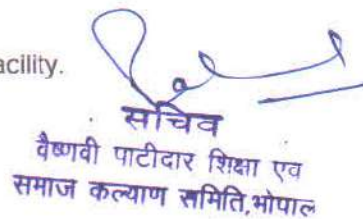 acility.
सचिव
वैष्णवी पाटीदार शिक्षा एव
समाज कल्याण समिति,भोपाल